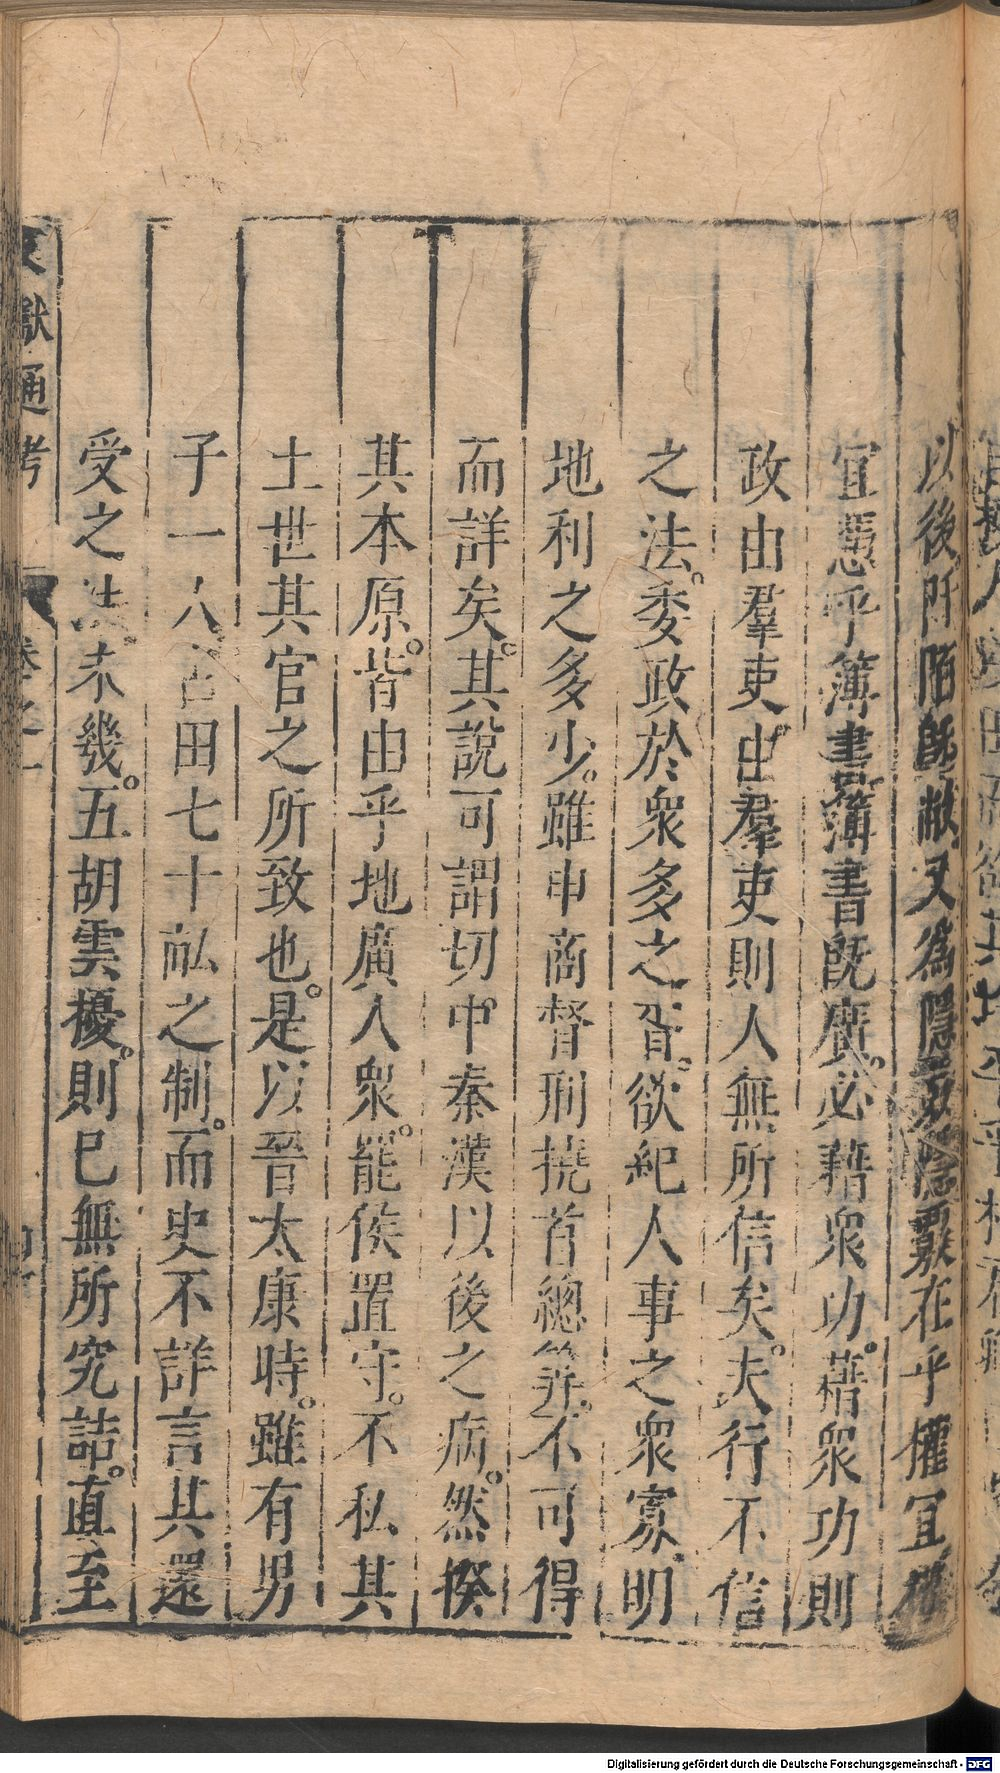 以後阡陌旣敝又爲隱覈隱覈在乎權宜權
宜憑乎簿書簿書旣廣必藉衆功藉衆功則
政由羣吏由羣吏則人無所信矣夫行不信
之法委政於衆多之胥欲紀人事之衆寡明
地利之多少雖申商督刑撓首總筭不可得
而詳矣其說可謂切中秦漢以後之病然揆
其本原皆由乎地廣人衆罷侯置守不私其
土世其官之所致也是以晉太康時雖有男
子一人占田七十畝之制而史不詳言其還
受之法未幾五胡雲擾則已無所究詰直至
文獻通考 卷之一
Digitalisierung gefördert durch die Deutsche Forschungsgemeinschaft - DFG